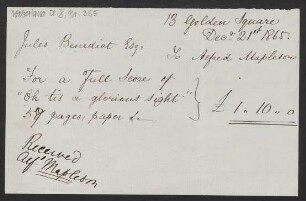 13 Golden Square
Decr 21st 1865.
Jules Benedict Esq:
To Alfred Mapleson
For a Full Score of
"Oh tis a glorious sight"
57 pages, paper &.
£1.10.0
Received
Alfd Mapleson